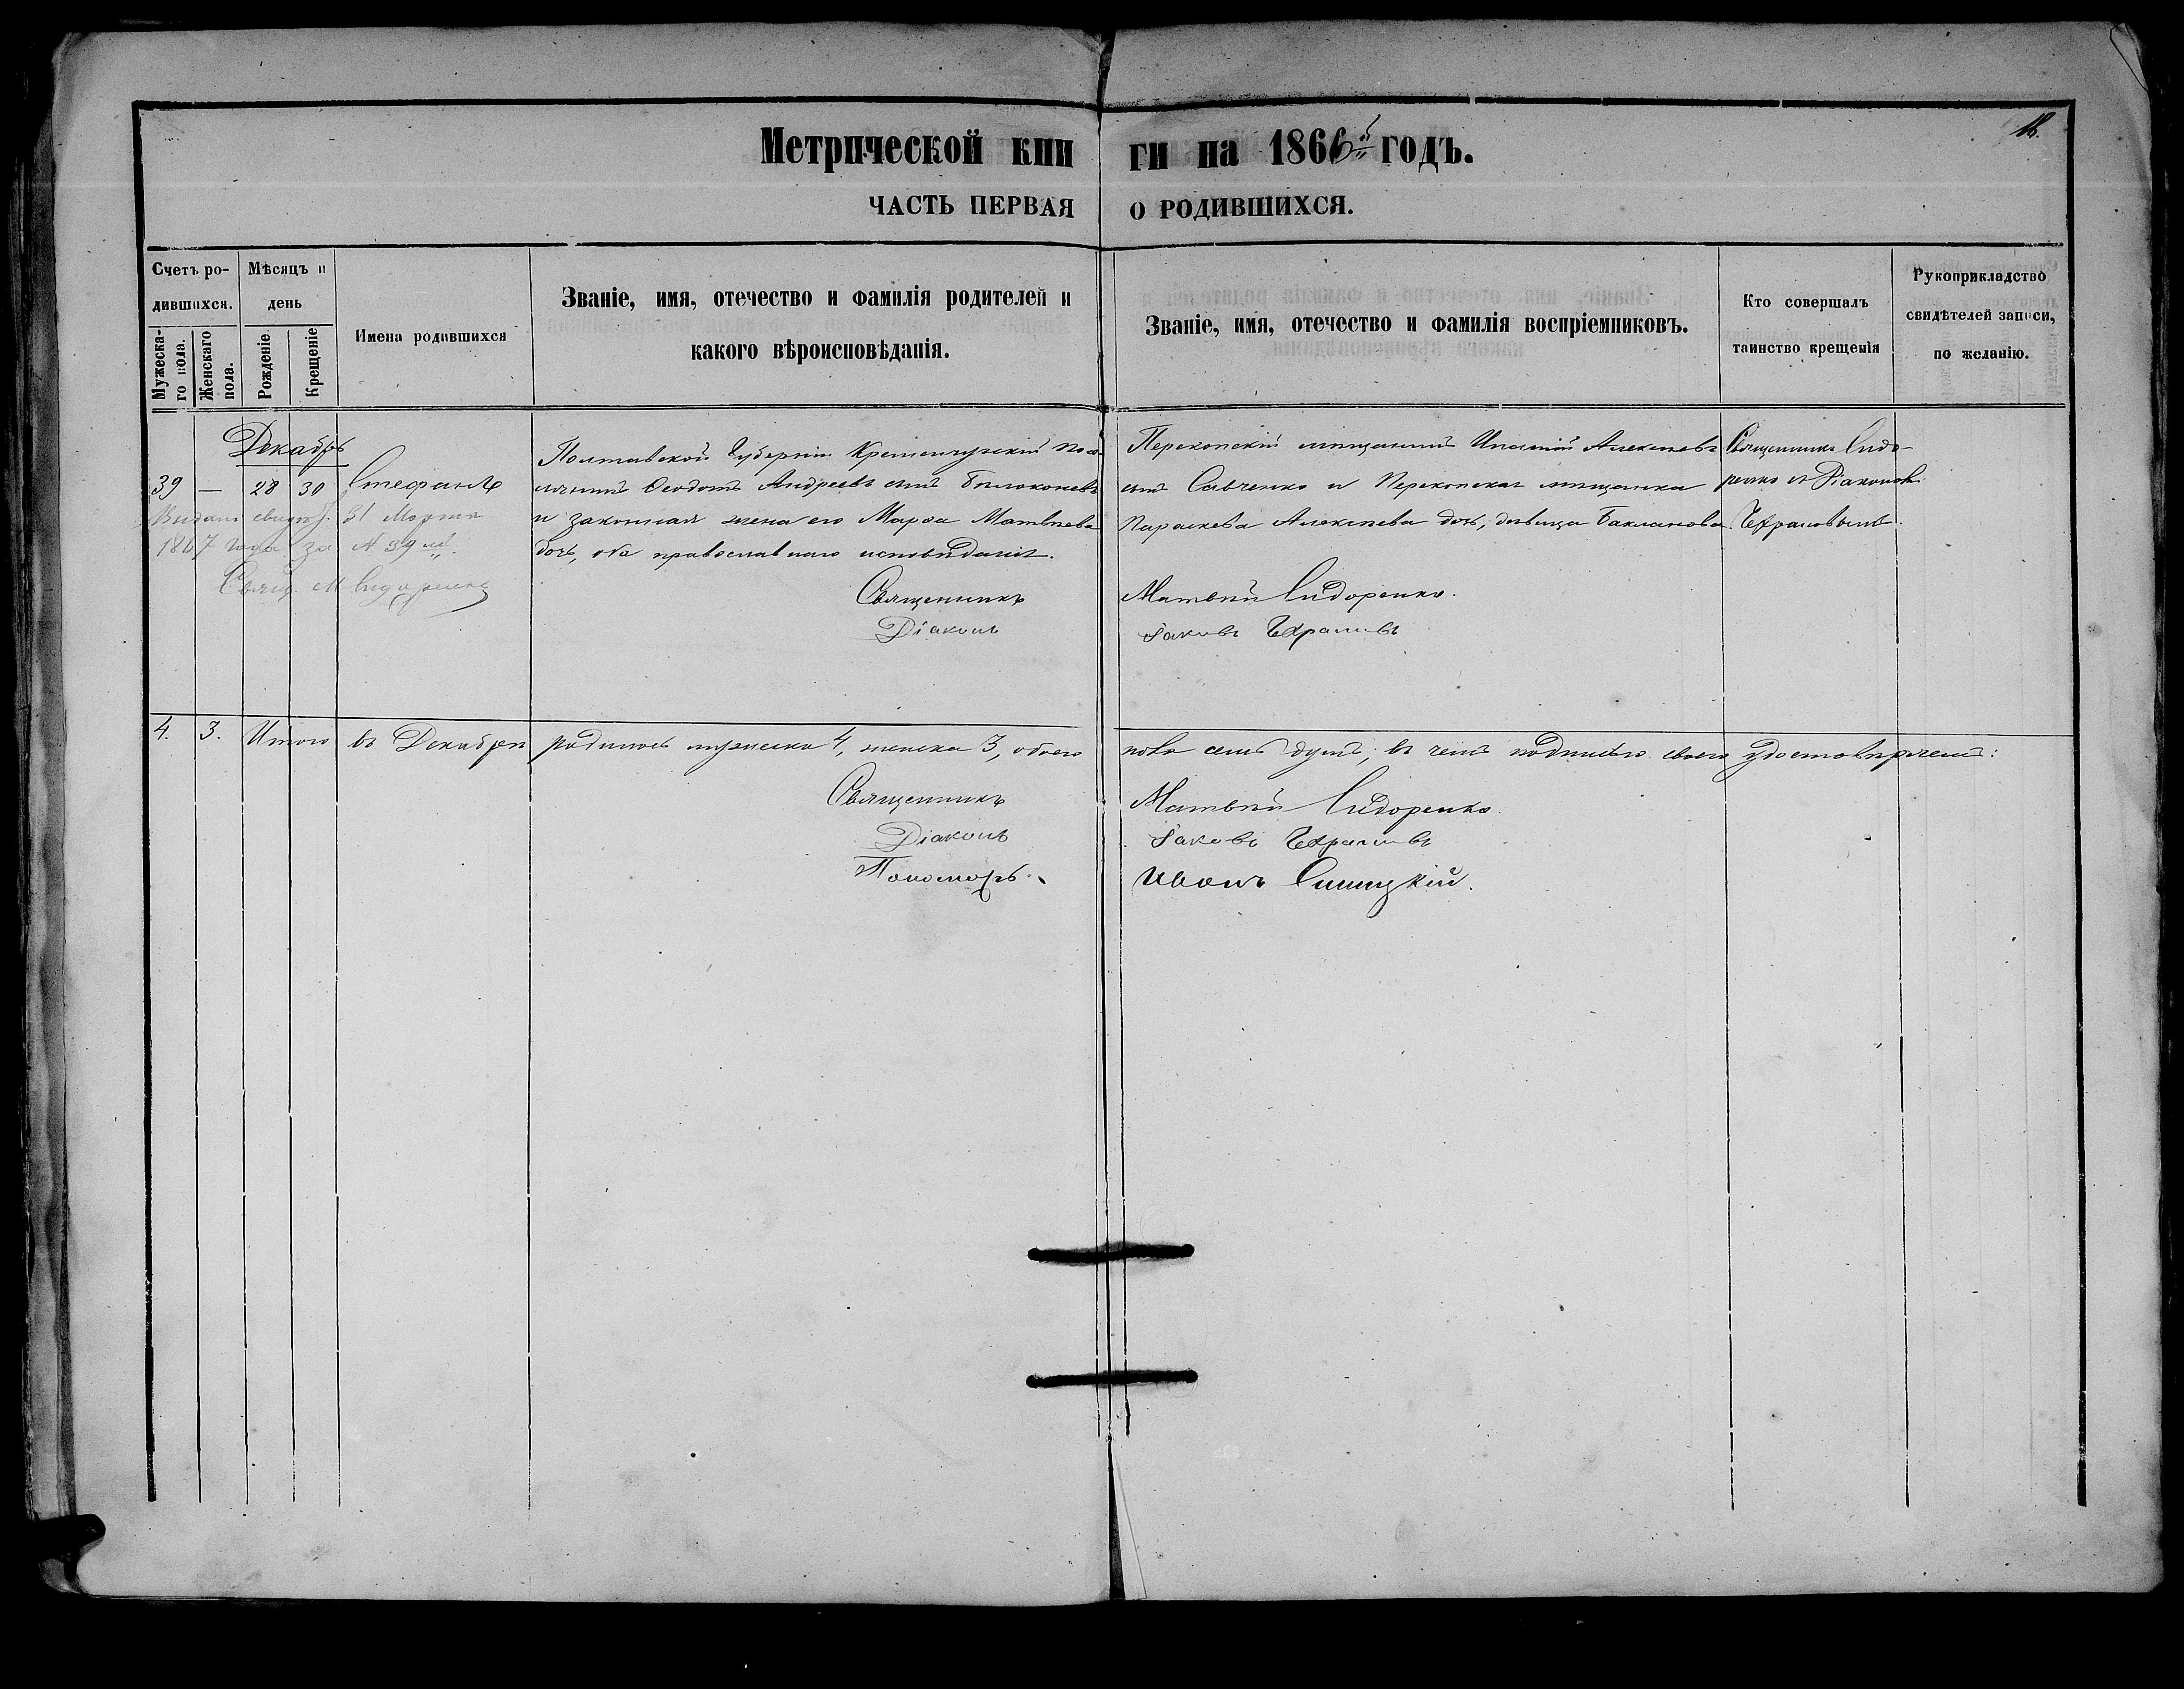 18.
Метрической кни ги на 1866й годъ.
ЧАСТЬ ПЕРВАЯ О РОДИВШИХСЯ.
Счетъ родившихся.
Мужескаго пола.
Женскаго пола.
Мѣсяцъ и день
Рожденіе
Крещеніе
Имена родившихся
Званіе, имя, отечество и фамилія родителей и
какого вѣроисповѣданія.
Званіе, имя, отечество и фамилія воспріемниковъ.
Кто совершалъ
таинство крещенія
Рукоприкладство
свидѣтелей записи,
по желанію.
Декабрь
39 — 28 30 Стефанъ
Выдано свидѣт. 31 Марта
1867 года за № 39 м.
Свящ. М Сидоренко
Полтавской Губерніи Кременчугскій
Ѳеодотъ Андреевъ сынъ Билоконевъ
и законная жена его Марѳа Матвѣева
дочь, оба православнаго исповѣданія.
Перекопскій мѣщанинъ Игнатій Алексѣевъ
сынъ Савченко и Перекопская мѣщанка
Параскева Алексѣева дочь, дѣвица Бакланова.
Священникъ Сидо-
ренко съ Діакономъ
Храмовымъ.
Священникъ Матвѣй Сидоренко.
Діаконъ Іаковъ Храмовъ
4. 3. Итого въ Декабрѣ родилось мужеска 4, женска 3, обоего пола семь душъ; въ чемъ подписью своею удостовѣряемъ:
Священникъ Матвѣй Сидоренко.
Діаконъ Іаковъ Храмовъ
Пономарь Иванъ Синицкій.